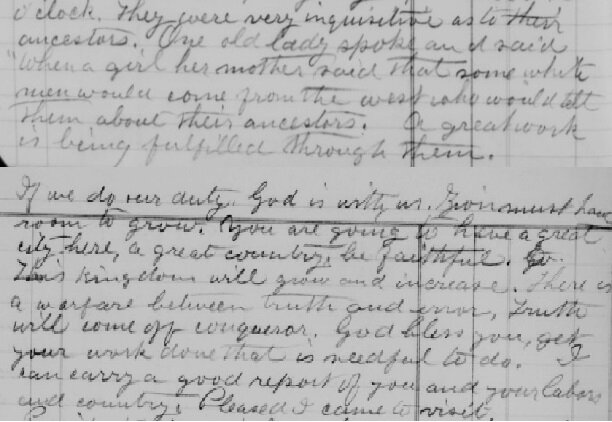 o'clock. They were very inquisitive as to their
ancestors. One old lady spoke and said
"when a girl her mother said that some white
men would come from the west who would tell
them about their ancestors. A great work
is being fulfilled through them.
If we do our duty, God is with us. Zion must have
room to grow. You are going to have a great
city here, a great country, be faithful.
This kingdom will grow and increase. There is
a warfare between truth and error, Truth
will come off conqueror. God bless you, get
your work done that is needful to do. I
can carry a good report of you and your labors
and country. Pleased I came to visit.